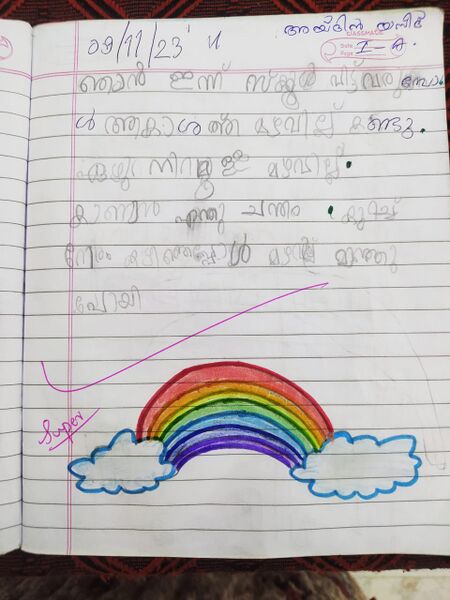 09/11/23
അയ്ദിൻ
CLASSMATE
Date
Page I-A
ഞാൻ ഇന്ന് സ്ക്കൂൾ വിട്ട് വരുമ്പോ
ൾ ആകാശത്ത് മഴവില്ല് കണ്ടു.
ഏഴു നിറമുള്ള മഴവില്ല്.
കാണാൻ എന്തു ചന്തം. കുറച്ച്
നേരം കഴിഞ്ഞപ്പോൾ മഴവില്ല് മാഞ്ഞു
പോയി
Super